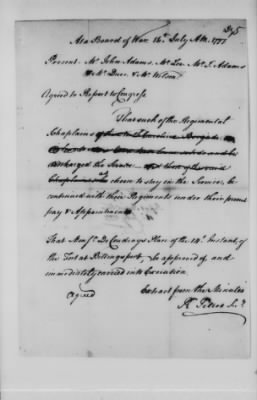 345
At a Board of War 14th July A.M. 1777
Present. Mr John Adams, Mr Lee, Mr S. Adams
Mr Duer & Mr Wilson
Agreed to Report to Congress
That such of the Regimental
Chaplains
discharged the Service
choose to stay in the Service, be
continued with their Regiments under their present
pay & Appointments
That Monsr De Coudrays Plan of the 14th Instant, of
the Fort at Billingsport, be approved of and
immediately carried into Execution
Agreed
Extract from the Minutes
R Peters Secy